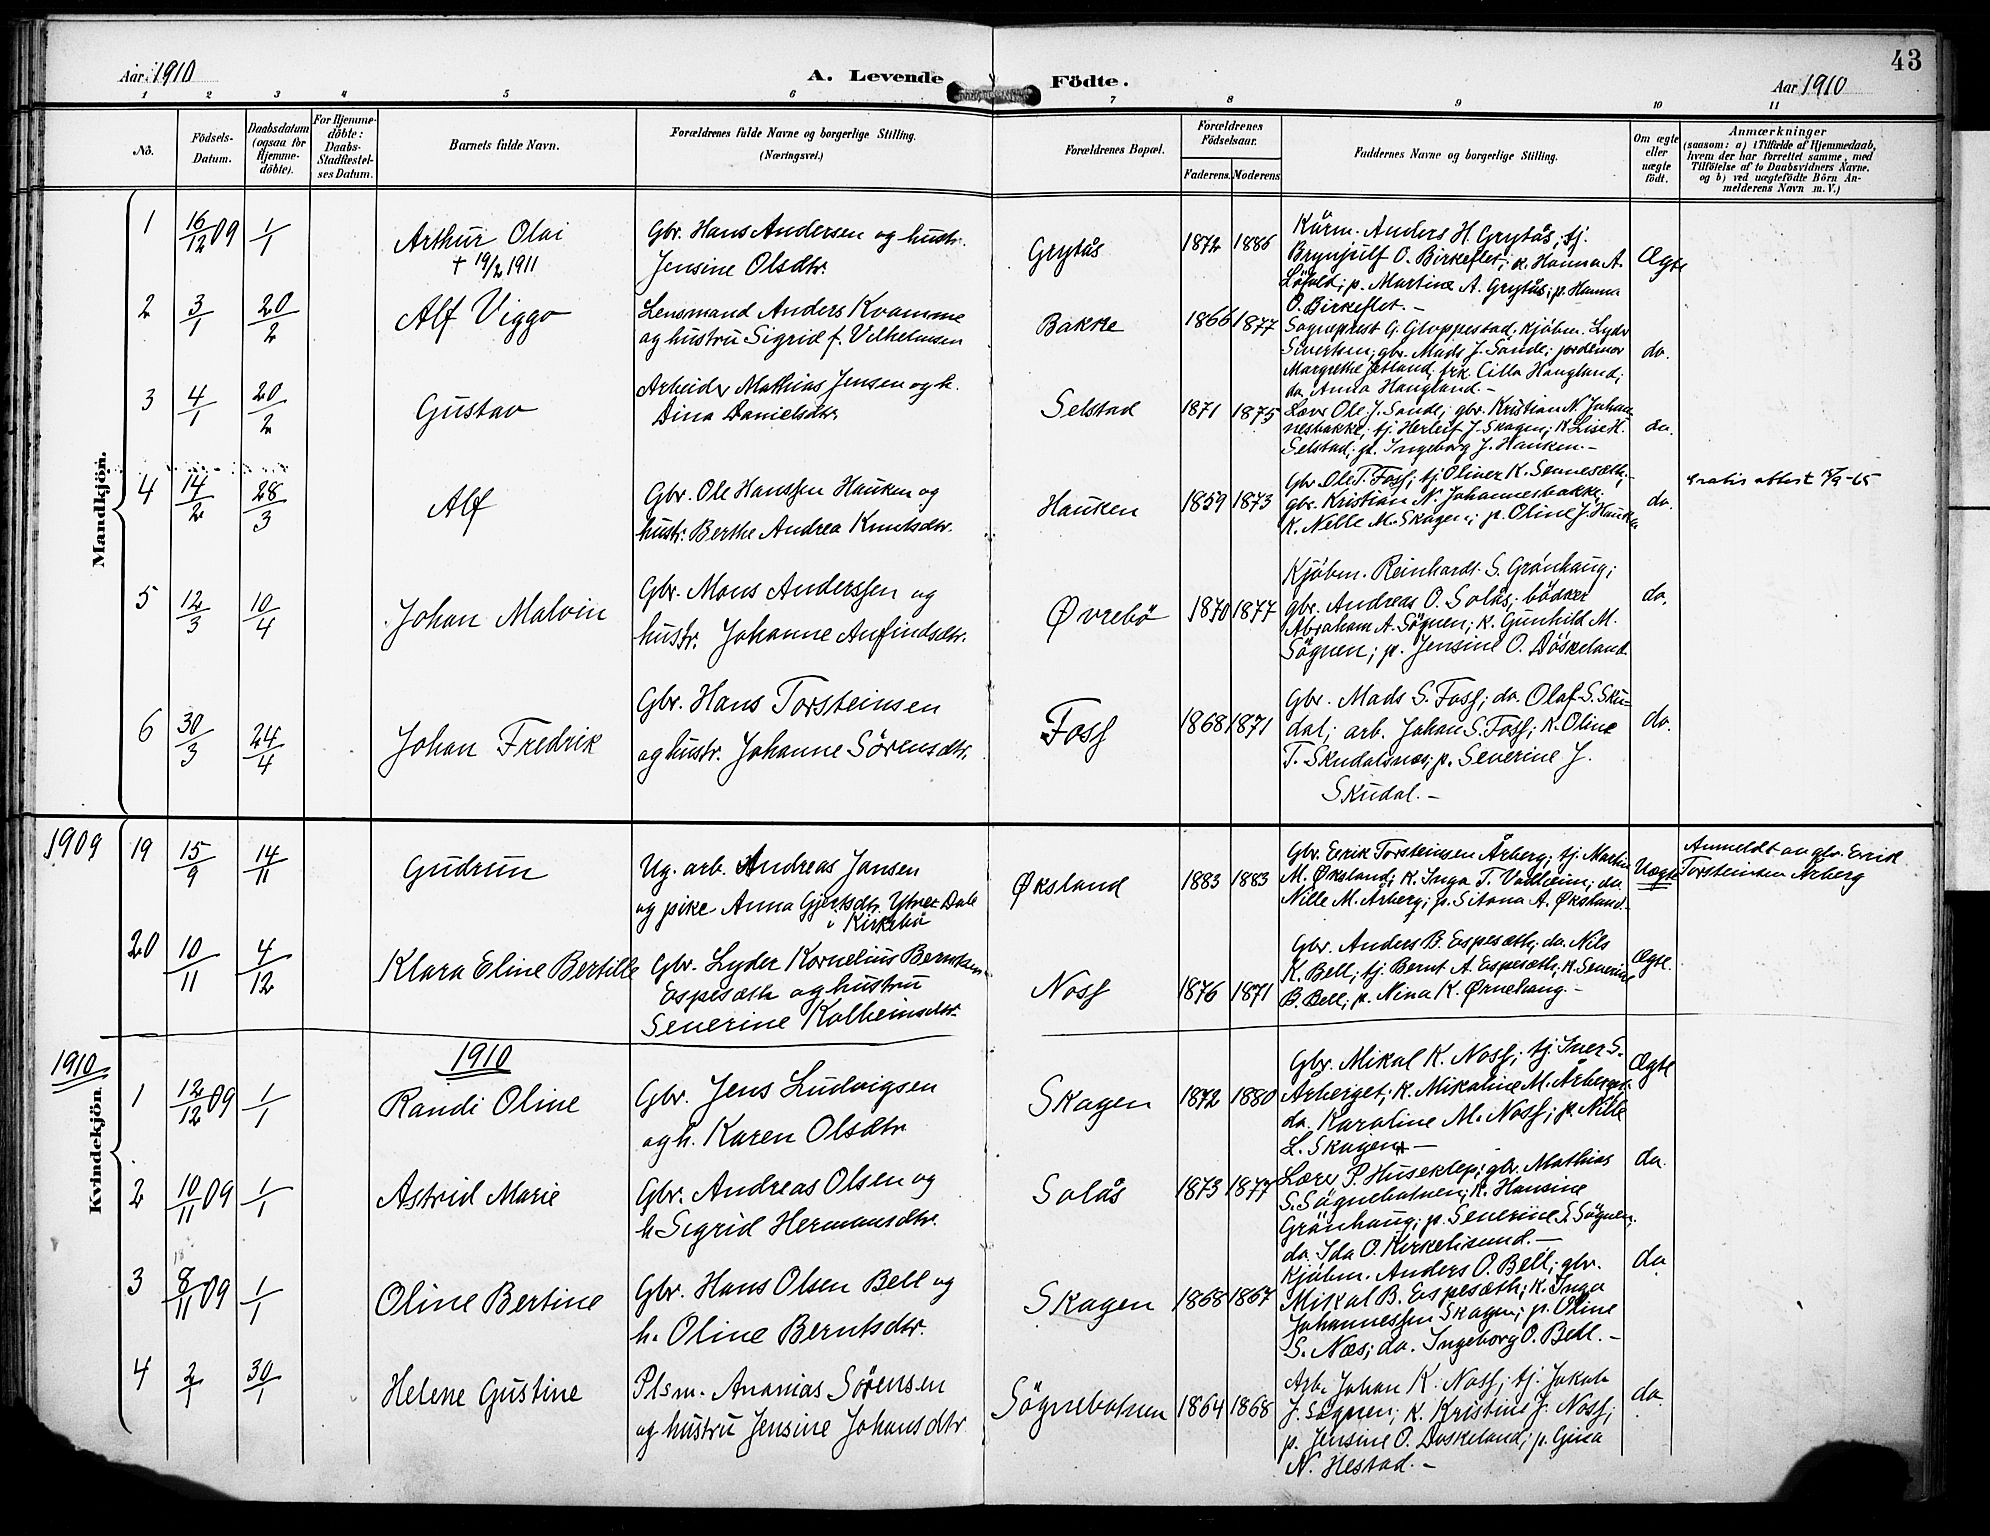 Aar 1910
A. Levende Födte.
43
Aar 1910
1 2 3 4 5 6 7 8 9 10 11
No.
Födsels-Datum.
Daabsdatum (ogsaa for Hjemme-döbte).
For Hjemme-döbte: Daabs-Stadfæstel-ses Datum.
Barnets fulde Navn.
Forældrenes fulde Navne og borgerlige Stilling.
(Næringsvei.)
Forældrenes Bopæl.
Forældrenes Födselsaar.
Faderens. Moderens
Faddernes Navne og borgerlige Stilling.
Om ægte eller uægte födt.
Anmærkninger
(saasom: a) i Tilfælde af Hjemmedaab,
hvem der har forrettet samme, med
Tilföielse af to Daabsvidners Navne.
og b) ved uægtefödte Börn An-
melderens Navn m. V.)
Mandkjön.
1 16/12 09 1/1 Arthur Olai
+ 19/2 1911
Gbr. Hans Andersen og hustr.
Jensine Olsdtr.
Grytås 1872 1886
Kårm. Anders H. Grytås, tj.
Brynjulf O. Birkeflet; k. Hanna A.
Löfald; p. Martine A. Grytås; p. Hanna
O. Birkeflet. –
Ægte
2 3/1 20/2 Alf Viggo
Lensmand Anders Kvamme
og hustru Sigrid f. Vilhelmsen
Bakke 1866 1877
Sogneprest G. Gloppestad, kjöbm. Lyder
Sivertsen; gbr. Mads J. Sande; jordemor
Margrethe Jetland, frk. Cilla Haugland;
do Anna Haugland. –
do.
3 4/1 20/2 Gustav
Arbeider Mathias Jensen og h.
Dina Danielsdtr.
Selstad 1871 1875
Lærer Ole J. Sande; gbr. Kristian N. Johan-
nesbakke; tj. Herleif J. Skagen; k. Lise H.
Selstad; p. Ingeborg J. Hauken –
do.
4 14/2 28/3 Alf
Gbr. Ole Hanssen Hauken og
hustr: Berthe Andrea Knutsdtr.
Hauken 1859 1873
Gbr. Ole T. Foss; tj. Oliver K. Sennesæth;
gbr. Kristian N. Johannesbakke;
k. Nelle M. Skagen; p. Oline J. Hauken
do.
Gratis attest /9-65
5 12/3 10/4 Johan Malvin
Gbr. Mons Anderssen og
hustr. Johanne Anfindsdtr.
Øvrebö 1870 1877
Kjöbm. Reinhardt S. Grönhaug;
gbr. Andreas O. Solås; bödker
Abraham A. Sögnen; k. Gunhild M.
Sögnen; p. Jensine O. Döskeland.
do.
6 30/3 24/4 Johan Fredrik
Gbr. Hans Torsteinsen
og hustr. Johanne Sørensdtr.
Foss 1868 1871
Gbr. Mads S. Foss; do. Olaf S. Sku-
dal; arb. Johan S. Foss; k. Oline
T. Skudalsnæs; p. Severine J.
Skudal. –
do.
1909
19 15/9 14/11 Gudrun
Ug. arb. Andreas Jansen
og pike Anna Gjertsdtr. Ytrer Dale
i Kirkebö
Øksland 1883 1883
Gbr. Eerik Torsteinsen Årberg; tj. Martin
M. Øksland; k. Inga T. Vadheim; do
Nille M. Årberg; p. Sitona A. Øksland –
Uægte
Anmeldt av gbr. Eerik
Torsteinsen Årberg
20 10/11 4/12 Klara Eline Bertille
Gbr. Lyder Kornelius Berntsen
Espesæth og hustru
Severine Kolbeinsdtr.
Noss 1876 1871
Gbr. Anders B. Espesæth; do. Nils
K. Bell; tj. Bernt A. Espesæth; k. Severine
B. Bell; p. Nina K. Ørnehaug. –
Ægte.
1910
Kvindekjön.
1910
1 12/12 09 1/1 Randi Oline
Gbr. Jens Ludvigsen
og h. Karen Olsdtr.
Skagen 1872 1880
Gbr. Mikal K. Noss; tj. Iver S.
Årberget; k. Mikaline M. Årberget
do. Karoline M. Noss; p. Nille
L. Skagen –
Ægte
2 10/11 09 1/1 Astrid Marie
Gbr. Andreas Olsen og
h. Sigrid Hermansdtr.
Solås 1873 1877
Lærer P. Huseklep; gbr. Mathias
S. Sögnebotnen; k. Hansine
Grönhaug; p. Severine S. Sögnen;
do. Ida O. Kirkelisund. –
do.
3 8/11 09 1/1 Oline Bertine
Gbr. Hans Olsen Bell og
h. Oline Berntsdtr.
Skagen 1868 1867
Kjöbm. Anders O. Bell; gbr.
Mikal B. Espesæth; k. Inga
Johannessen Skagen; p. Oline
S. Næs; do. Ingeborg O. Bell. –
do.
4 2/1 30/1 Helene Gustine
Plsm. Ananias Sørensen
og hustru Jensine Johansdtr
Sögnebotnen 1864 1868
Arb. Johan K. Noss; tj. Jakob
J. Sögnen; k. Kristine J. Noss;
p. Jensine O. Doskeland; p. Gina
N. Hestad. –
do.